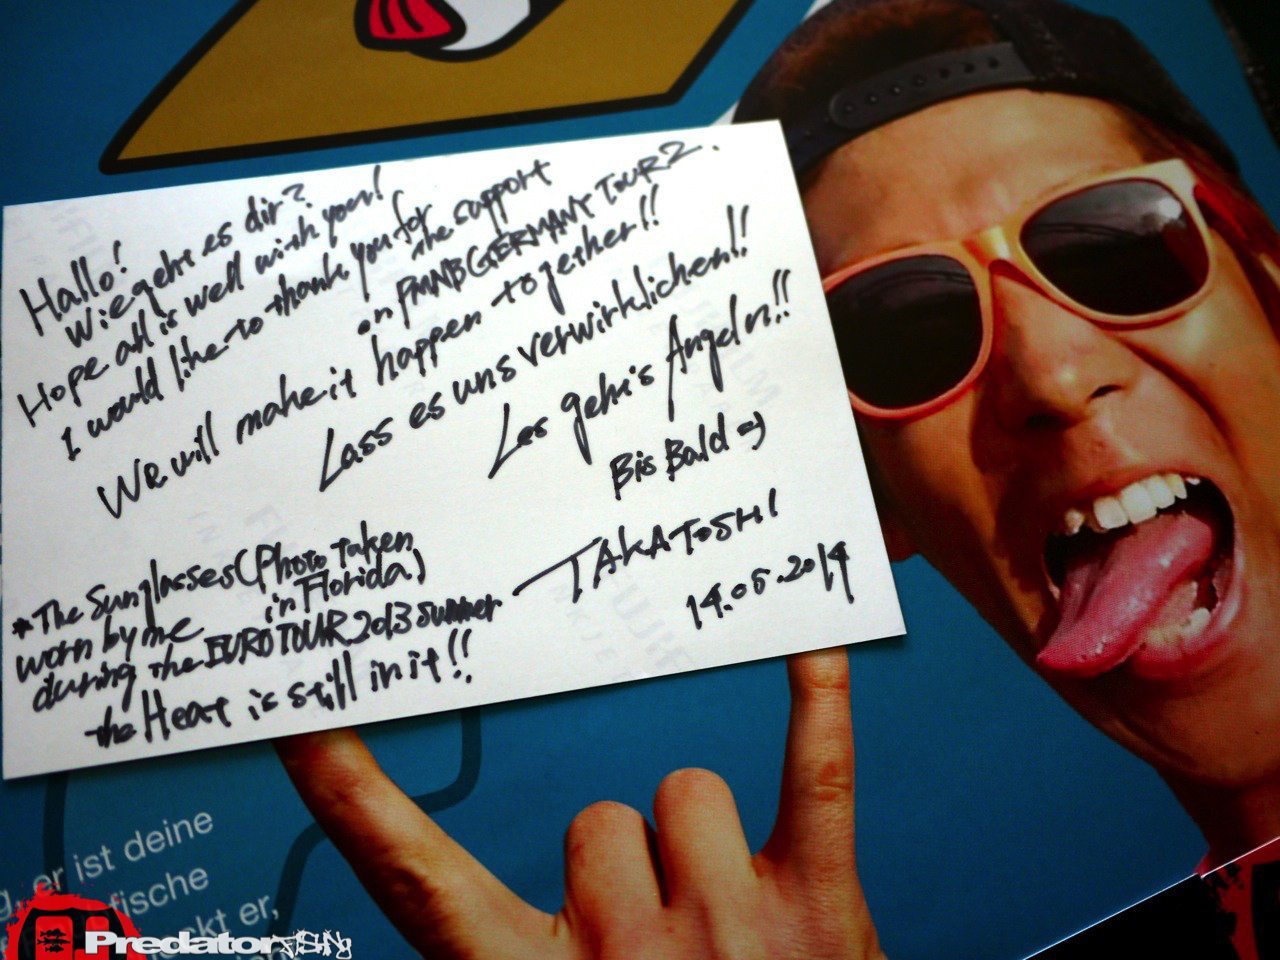 Hallo!
Wie geht es dir?
Hope all is well with you!
I would like to thank you for
the support
on PMNB GERMANY TOUR 2.
We will make it happen together!!
Lass es uns verwirklichen!!
Las gehis Angeln!!
Bis Bald =)
TAKATOSHI
14.05.2014
*The Sunglasses (Photo taken
in Florida)
worn by me
during the EURO TOUR 2013 Summer
the Heat is still in it!!
er ist deine
fische
kt er,
Predator